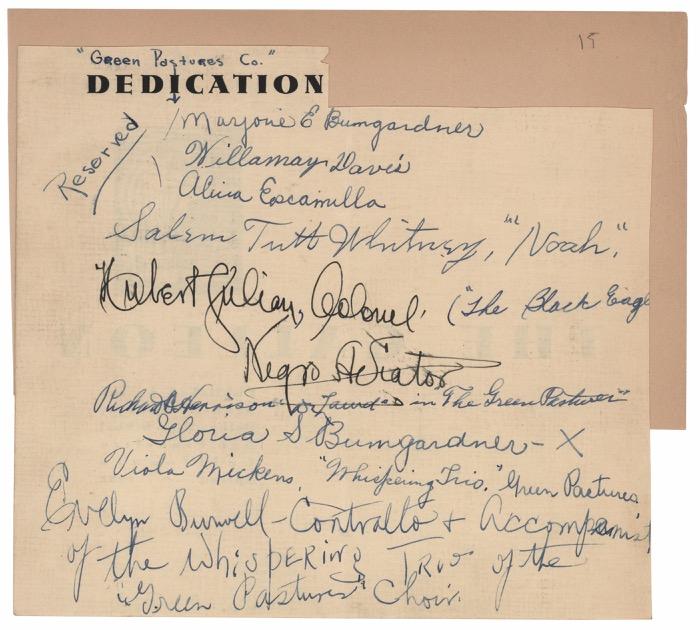 15
"Green Pastures Co."
DEDICATION
Reserved
Marjorie E Bumgardner
Willamay Davis
Alicia Escamilla
Salem Tutt Whitney, "Noah".
Hubert Julian, Colonel. ("The Black Eagl
Negro Aviator
Richard B Harrison "De Lawd" in "The Green Pastures"
Gloria S Bumgardner - X
Viola Mickens, "Whispering Trio." Green Pastures.
Evelyn Burwell - Contralto & Accompanist
of the Whispering Trio of the
"Green Pastures" Choir.